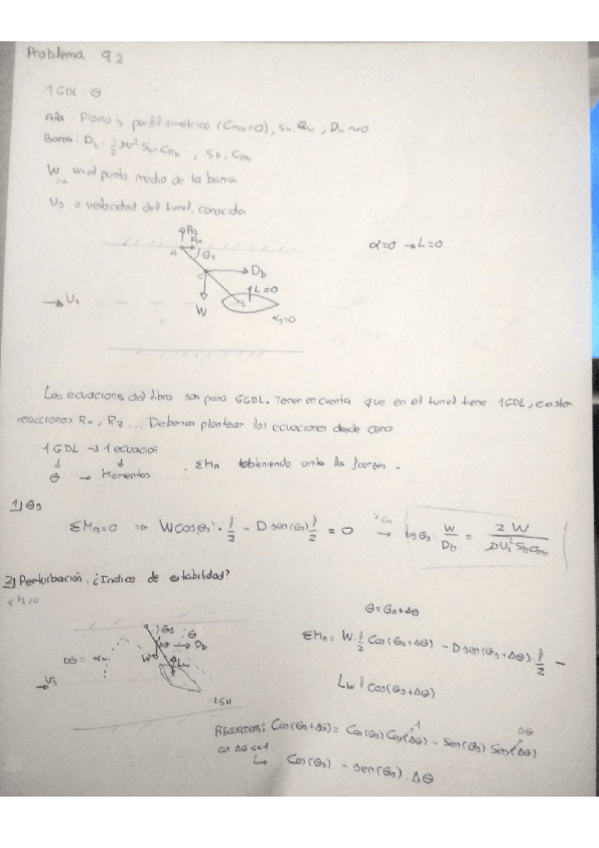 Problema 9.2
1 GDL: θ
Ala: Plana y perfil simétrico (Cma=0), Sw, aw, Dw≈0
Barra: Db = 1/2 ρU²Sb·CDb, Sb, CDb
W en el punto medio de la barra
Us ≡ velocidad del tunel, conocida
Rz
Rx
A
θs
α=0 → L=0
Db
L=0
Us
W
αs=0
Las ecuaciones del libro son para 6GDL. Tener en cuenta que en el tunel tiene 1GDL,
reacciones Rx, Rz ... Debemos plantear las ecuaciones desde cero
1 GDL → 1 ecuación
θ → Momentos
ΣMA las fuerzas.
1) θs
ΣMA=0 ⇒ W cos(θs)·l/2 - D sen(θs) l/2 = 0 → tgθs = W/Db = 2W/ρUs²SbCDb
2) Perturbación. ¿Indice de estabilidad?
θ=θs+Δθ
ΣMA = W·l/2 cos(θs+Δθ) - D sen(θs+Δθ)·l/2 -
Lw l cos(θs+Δθ)
θs
θ
Db
W
Lw
Δθ = αw
Us
Cos(θs+Δθ) = Cos(θs) Cos(Δθ) - Sen(θs) Sen(Δθ)
1
Δθ
↳ Cos(θs) - sen(θs)·Δθ